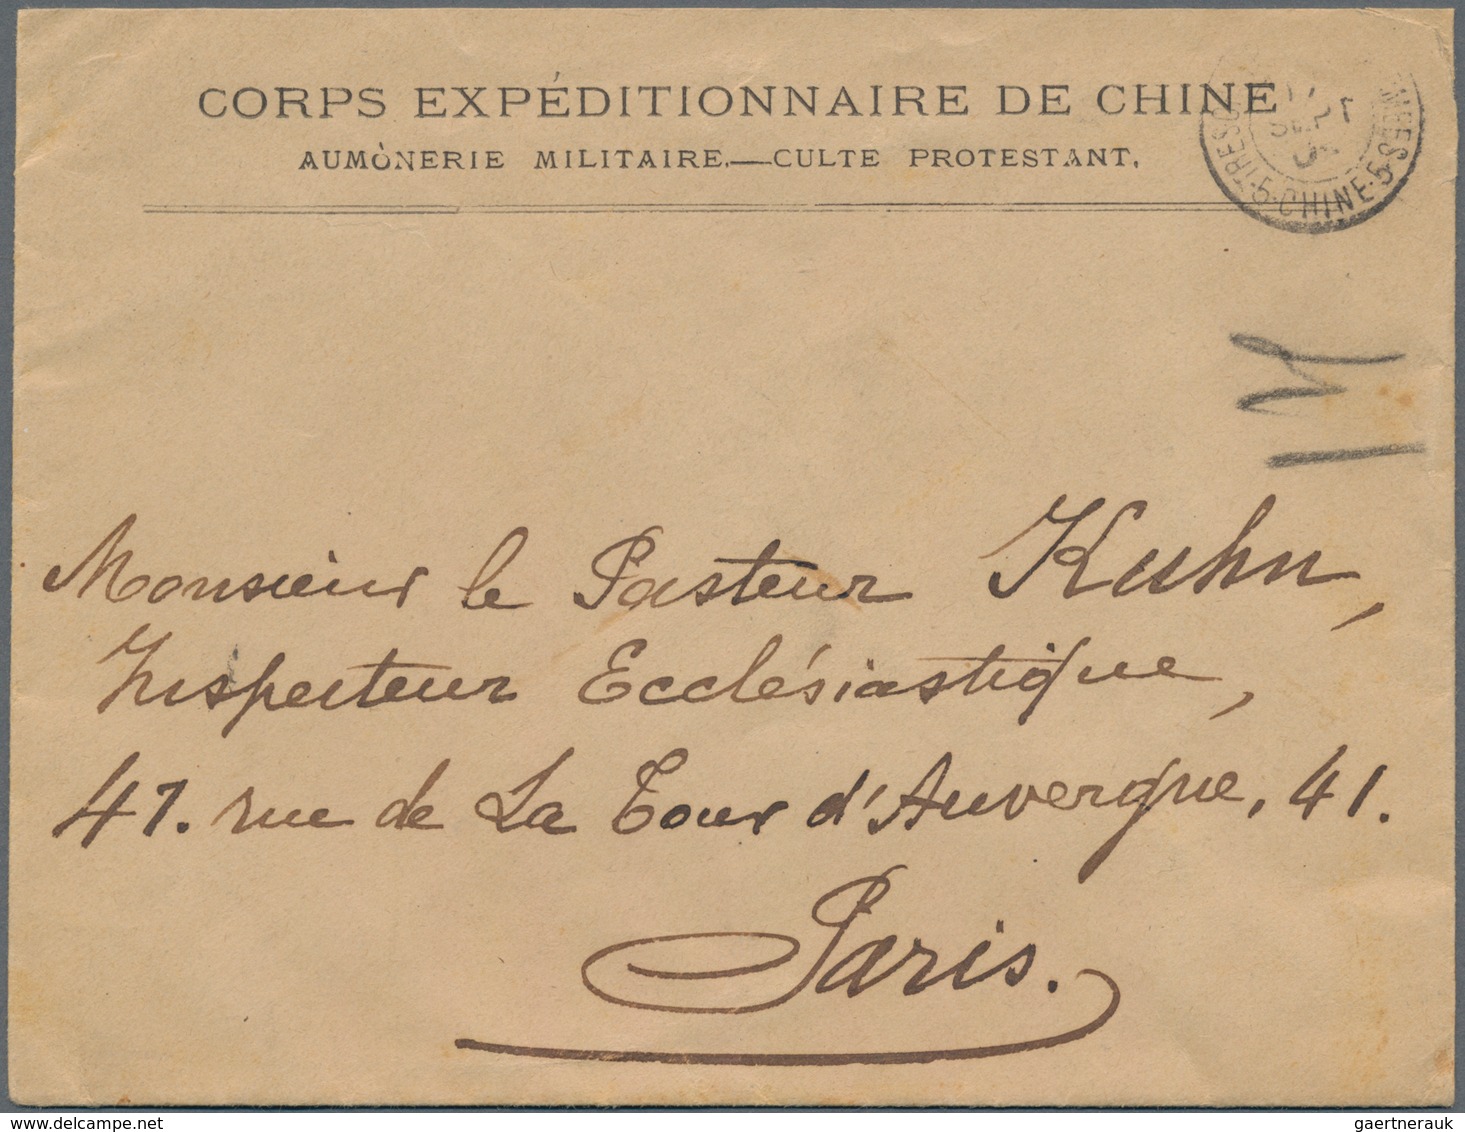 CORPS EXPÉDITIONNAIRE DE CHINE
AUMÒNERIE MILITAIRE.—CULTE PROTESTANT.
5·CHINE·5
Monsieur le Pasteur Kuhn,
Inspecteur Ecclésiastique,
41. rue de La Tour d'Auvergne, 41.
Paris.
www.delcampe.net
gaertnerauk